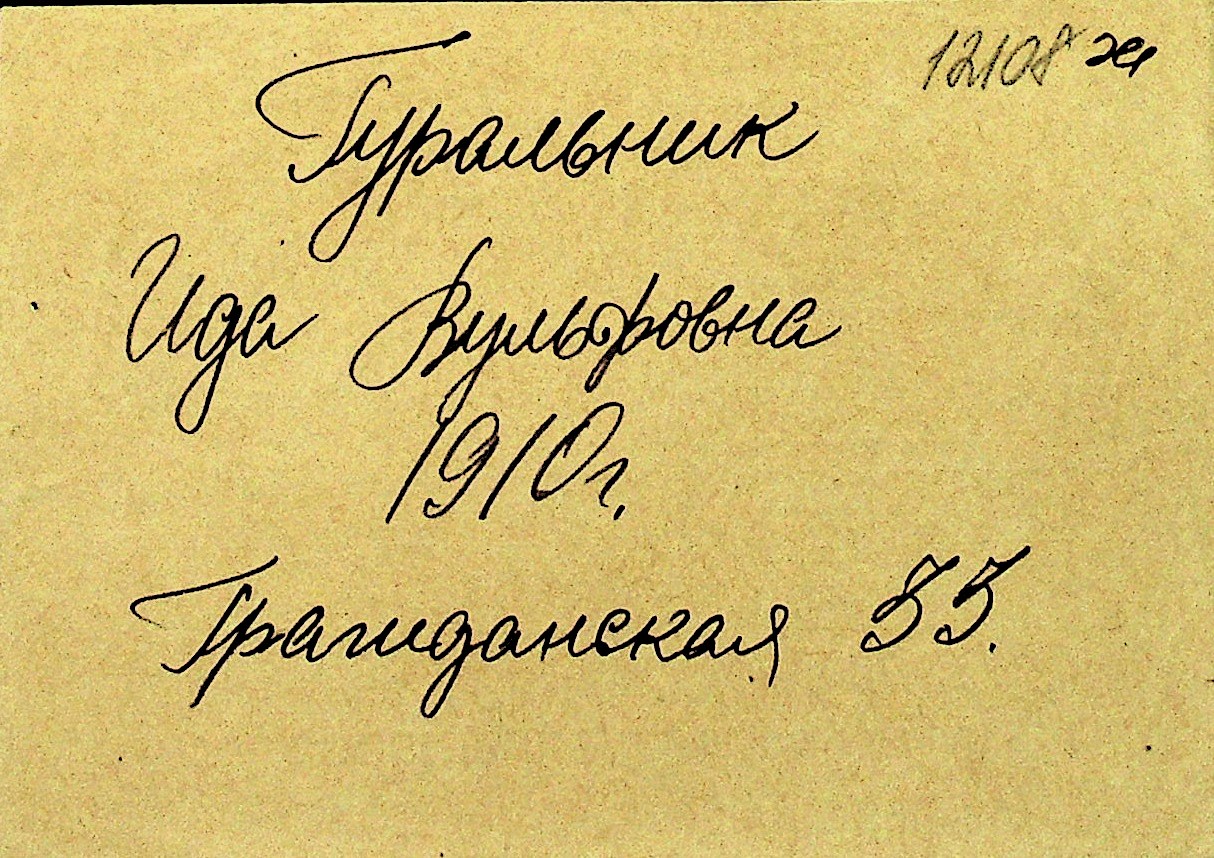 12108 ж
Гуральник
Ида Вульфовна
1910г.
Гражданская 33.